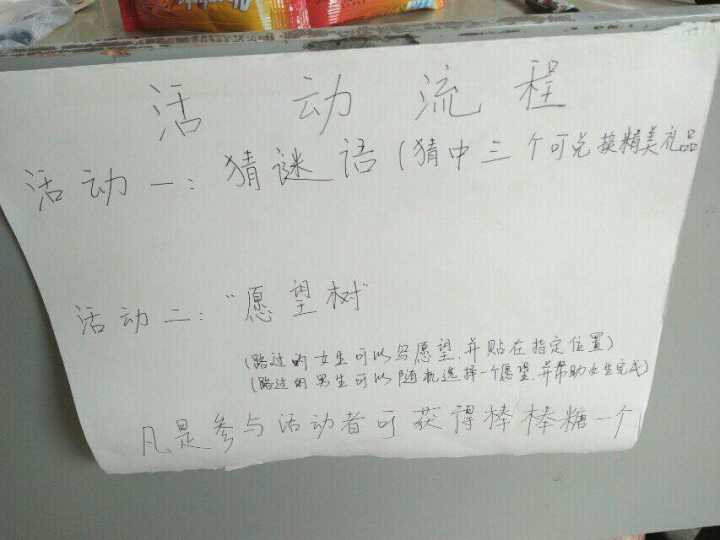 活动流程
活动一:猜谜语(猜中三个可兑换精美礼品
活动二:“愿望树”
(路过的女生可以写愿望,并贴在指定位置)
(路过的男生可以随机选择一个愿望,并帮助女生完成)
凡是参与活动者可获得棒棒糖一个